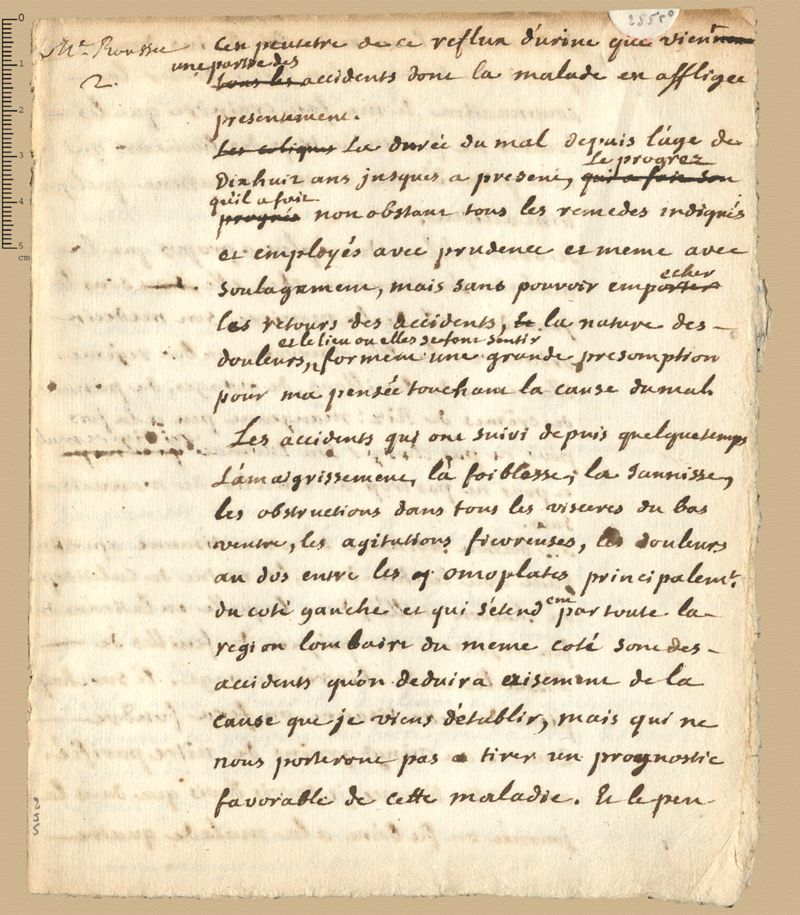 2555°
Mr Rousse
2.
Cest peutetre de ce reflux d'urine que vient
une partie des
tous les accidents dont la malade est affligée
presentement.
Les coliques La durée du mal depuis l'age de
Le progrez
Dixhuit ans jusques a present, qui a fait son
qu'il a fait
progrès non obstant tous les remedes indiqués
et employés avec prudence et meme avec
echer
soulagement, mais sans pouvoir emporter
les retours des accidents, la nature des-
et le lieu ou elles se font sentir
douleurs, forment une grande presomption
pour ma pensée touchant la cause du mal.
Les accidents qui ont suivi depuis quelque temps
L'amaigrissement, la foiblesse, la Jaunisse,
les obstructions dans tous les visceres du bas
ventre, les agitations fievreuses, les douleurs
au dos entre les omoplates principalemt.
du coté gauche et qui s'étendent par toute la-
region lombaire du meme coté sont des-
accidents qu'on deduira aisement de la
cause que je viens d'établir, mais qui ne
nous porteront pas a tirer un prognostic
favorable de cette maladie. Et le peu
255
0
1
2
3
4
5
cm